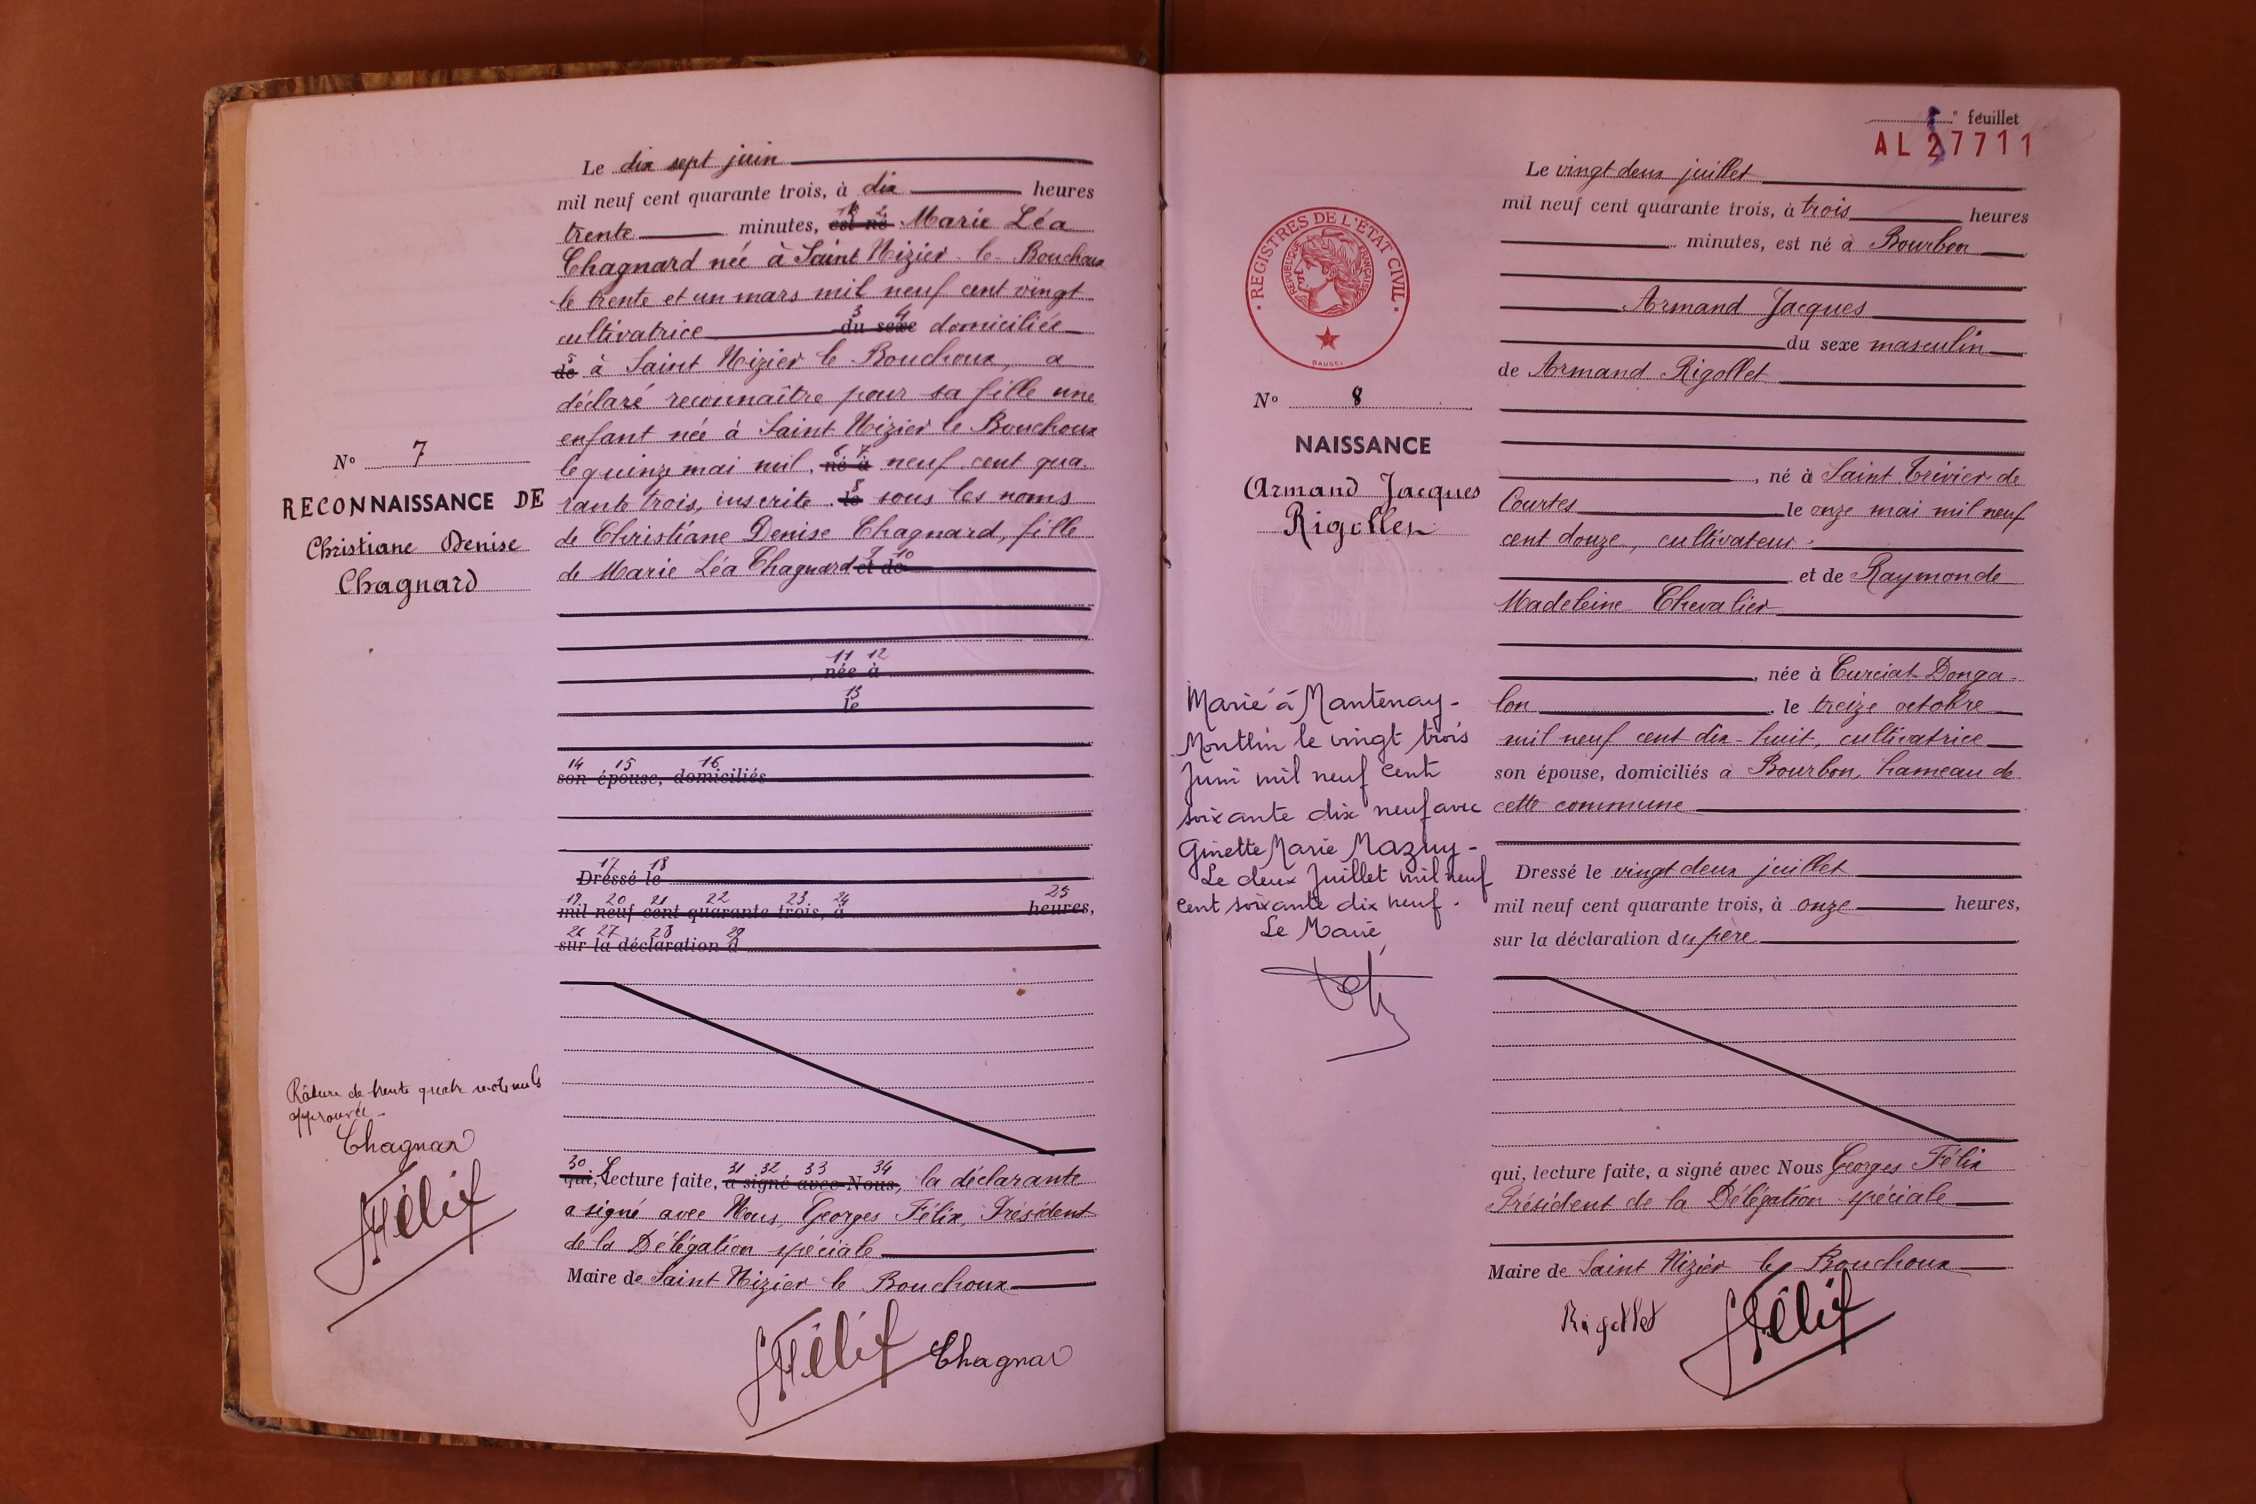 N° 7
RECONNAISSANCE DE
Christiane Denise
Chagnard
Râture de trente quatre mots nuls
approuvée
Chagnard
GFélix
Le dix sept juin
mil neuf cent quarante trois, à dix heures
trente minutes, est né Marie Léa
1 2
Chagnard née à Saint Nizier-le-Bouchoux
le trente et un mars mil neuf cent vingt
3 4
cultivatrice du sexe domiciliée
5
de à Saint Nizier le Bouchoux, a
déclaré reconnaître pour sa fille une
enfant née à Saint Nizier le Bouchoux
6 7
le quinze mai mil, né à neuf cent qua-
8
rante trois, inscrite le sous les noms
de Christiane Denise Chagnard, fille
9 10
de Marie Léa Chagnard et de
11 12
, née à
13
le
14 15 16
son épouse, domiciliés
17 18
Dressé le
19 20 21 22 23 24 25
mil neuf cent quarante trois, à heures,
26 27 28 29
sur la déclaration d
30 31 32 33 34
qui, Lecture faite, a signé avec Nous, la déclarante
a signé avec Nous, Georges Félix, Président
de la Délégation spéciale
Maire de Saint Nizier le Bouchoux
GFélix Chagnard
° feuillet
AL 27711
REGISTRES DE L'ÉTAT CIVIL
RÉPUBLIQUE FRANÇAISE
N° 8
NAISSANCE
Armand Jacques
Rigollet
Marié à Mantenay-
Montlin le vingt trois
Juin mil neuf cent
soixante dix neuf avec
Ginette Marie Mazuy-
Le deux Juillet mil neuf
cent soixante dix neuf.
Le Maire
Le vingt deux juillet
mil neuf cent quarante trois, à trois heures
minutes, est né à Bourbon
Armand Jacques
du sexe masculin
de Armand Rigollet
, né à Saint Trivier-de
Courtes le onze mai mil neuf
cent douze, cultivateur
et de Raymonde
Madeleine Chevalier
, née à Curciat-Donga-
lon le treize octobre
mil neuf cent dix-huit, cultivatrice
son épouse, domiciliés à Bourbon, hameau de
cette commune
Dressé le vingt deux juillet
mil neuf cent quarante trois, à onze heures,
sur la déclaration du père
qui, lecture faite, a signé avec Nous Georges Félix
Président de la Délégation spéciale
Maire de Saint Nizier le Bouchoux
Rigollet GFélix